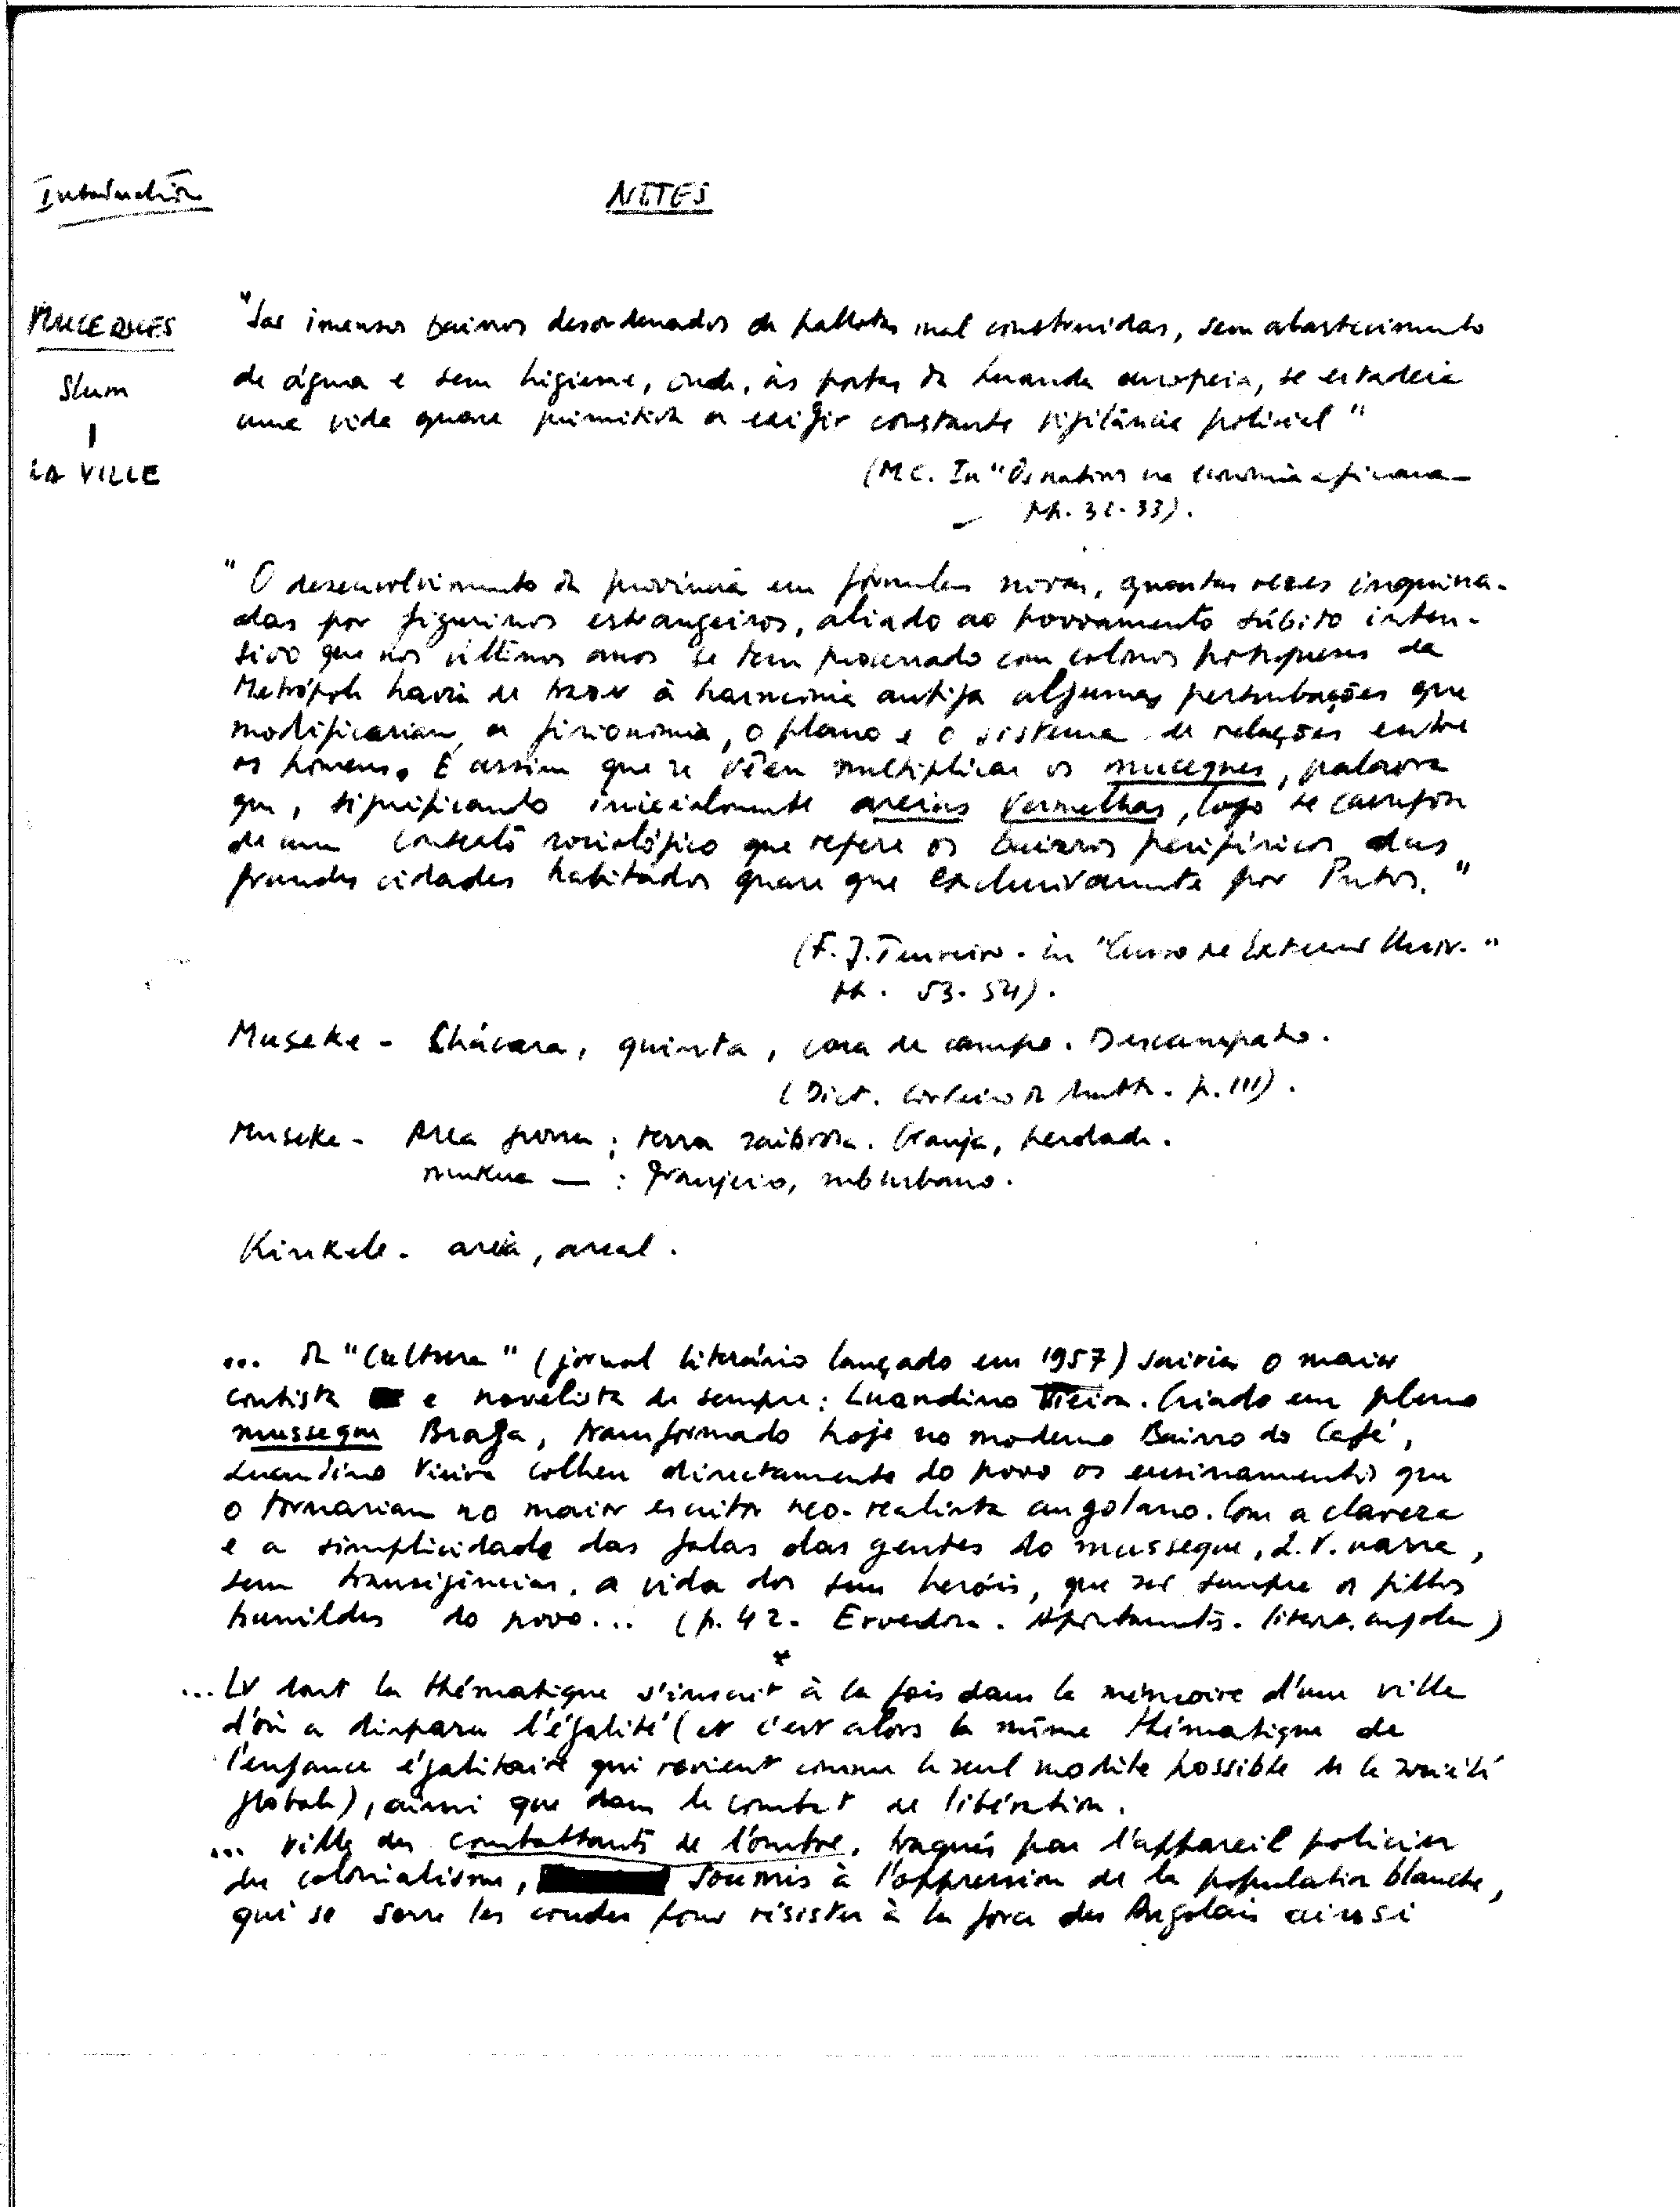 Introduction
NOTES
MUCEQUES
Slum
LA VILLE
"São imensos bairros desordenados de palhotas mal construidas, sem abastecimento
de água e sem higiene, onde, às portas da Luanda europeia, se estadeia
uma vida quase primitiva a exigir constante vigilância policial"
(M.C. In "Os nativos na economia africana
pp. 32-33).
"O desenvolvimento da província em fórmulas novas, quantas vezes inquina-
das por figurinos estrangeiros, aliado ao povoamento súbito inten-
sivo que nos últimos anos se tem processado com colonos portugueses da
Metrópole havia de trazer à harmonia antiga algumas perturbações que
modificariam a fisionomia, o plano e o sistema de relações entre
os homens. É assim que se vêem multiplicar os muceques, palavra
que, significando inicialmente areias vermelhas, logo se carregou
de um conteúdo sociológico que refere os bairros periféricos das
grandes cidades habitados quase que exclusivamente por Pretos."
(F. J. Tenreiro. in "Curso de Extensão Univ."
pp. 53-54).
Museke - Chácara, quinta, casa de campo. Descampado.
(Dict. Cordeiro da Matta. p. 111).
Museke - Area grossa; terra saibrosa. Granja, herdade.
mukua — : granjeiro, suburbano.
Kinkele - areia, areal.
... Da "Cultura" (jornal literário lançado em 1957) sairia o maior
contista e novelista de sempre: Luandino Vieira. Criado em pleno
musseque Braga, transformado hoje no moderno Bairro do Café,
Luandino Vieira colheu directamente do povo os ensinamentos que
o tornariam no maior escritor neo-realista angolano. Com a clareza
e a simplicidade das falas das gentes do musseque, L.V. narra,
sem transigências, a vida dos seus heróis, que são sempre os filhos
humildes do povo... (p. 42. Ervedosa. Apontamentos. litera. angolan)
*
... LV dont la thématique s'inscrit à la fois dans la mémoire d'une ville
d'où a disparu l'égalité (et c'est alors la même thématique de
l'enfance égalitaire qui revient comme le seul modèle possible de la société
globale), ainsi que dans le combat de libération.
... Ville des combattants de l'ombre, traqués par l'appareil policier
du colonialisme, soumis à l'oppression de la population blanche,
qui se serre les coudes pour résister à la force des Angolais ainsi